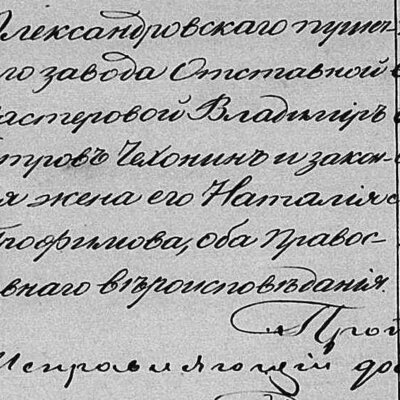 Александровскаго пушеч-
го завода Отставной
астеровой Владимiръ
тровъ Чехонинъ и закон-
я жена его Наталiя
рофимова, оба Правос-
внаго вѣроисповѣданiя.
Трой
Исправляющiй до